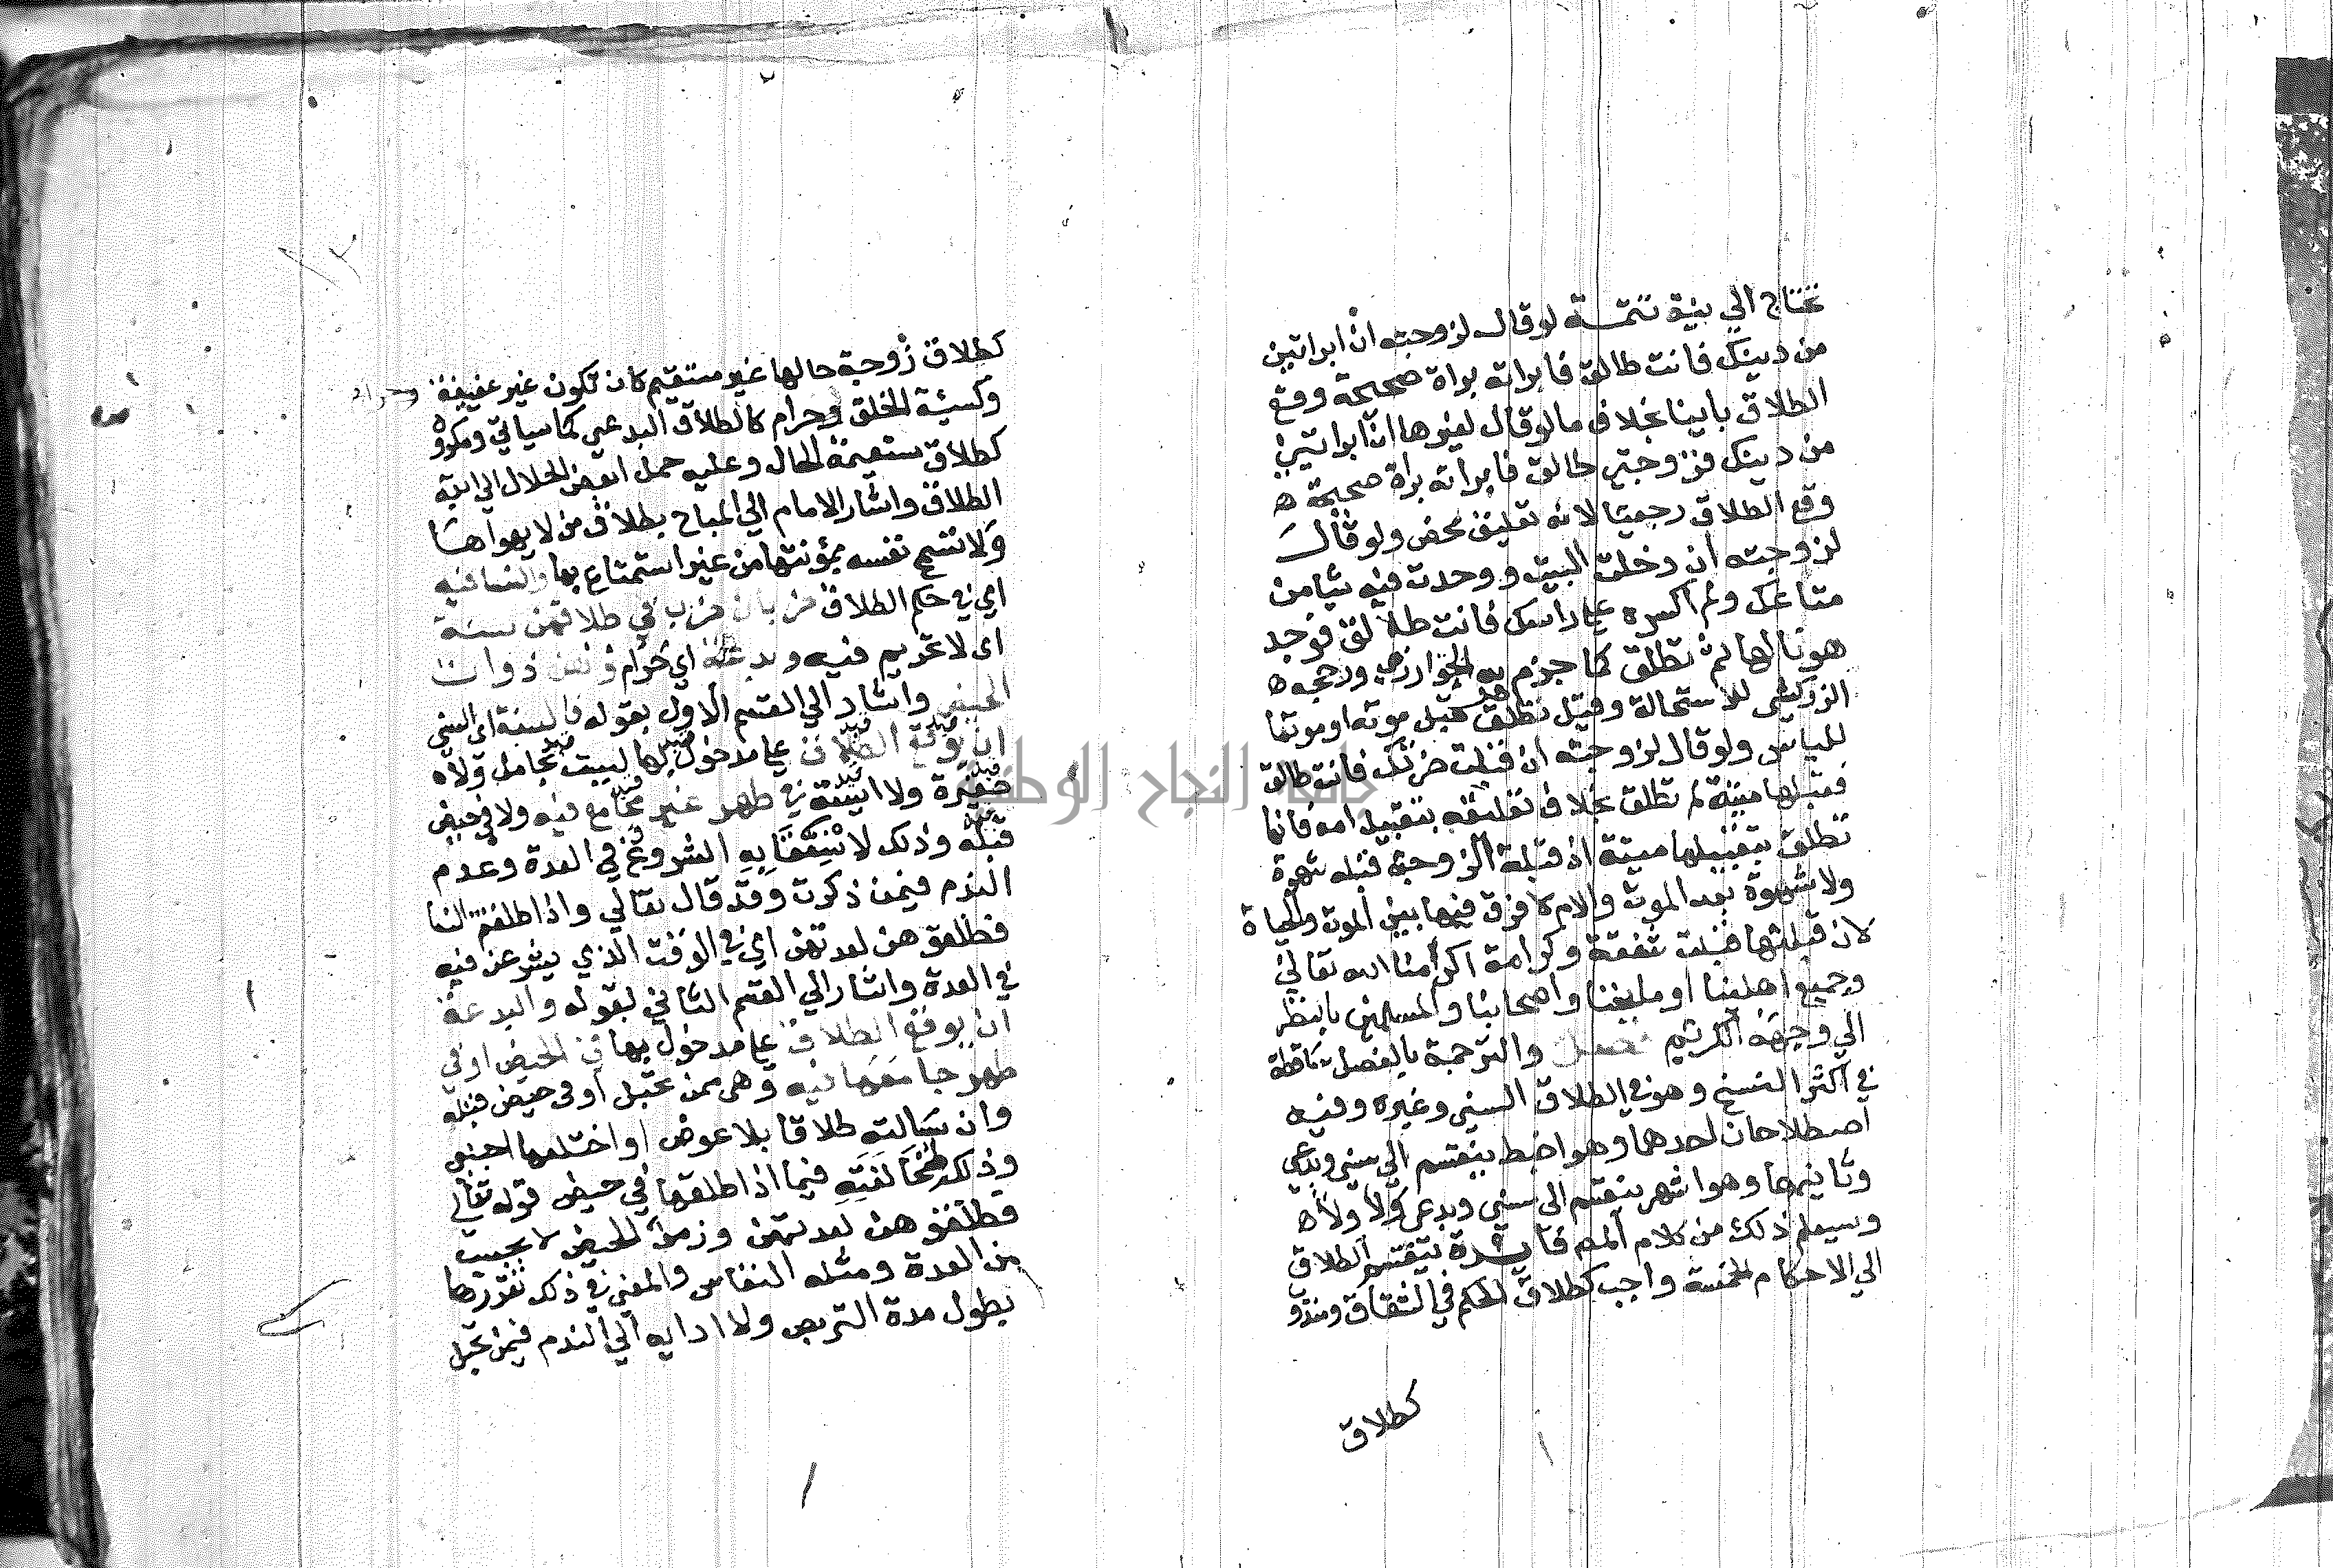 تحتاج الي نية تتمة لو قال لزوجته ان ابراتين
من دينك فانت طالق فابراته براة صحيحة وقع
الطلاق باينا بخلاف ما لو قال لغيرها ان ابراتيني
من دينك فزوجتي طالق فابراته براة صحيحة ه
وقع الطلاق رجعيا لانه تعليق محض ولو قال
لزوجته ان دخلت البيت ووجدت فيه شيا من
متاعك ولم اكسره علي راسك فانت طالق فوجد
هونا لها لم تطلق كما جزم به الخوارزمي ورجحه ه
الزركشي للاستحالة وقيل تطلق قبيل موته او موتها
للياس ولو قال لزوجته ان قبلت ضرتك فانت طالق
فقبلها ميتة لم تطلق بخلاف تعليقه بتقبيل امه فانها
تطلق بتقبيلها ميتة اذ قبلة الزوجة قبله شهوة
ولا شهوة بعد الموت والام لا فرق فيها بين الموت والحياة
لان قبلتها قبلت شفقة وكرامة اكرمنا الله تعالي
وجميع اهلينا ومشايخنا واصحابنا والمسلمين بالنظر
الي وجهه الكريم فصل والترجمة بالفصل ساقطة
في اكثر النسخ وهو في الطلاق السني وغيره وفيه
اصطلاحان احدهما وهو اضبط ينقسم الي سني وبدعي
وثانيهما وهو اشهر ينقسم الي سني وبدعي ولا ولا ه
وسيعلم ذلك من كلام المص فايدة ينقسم الطلاق
الي الاحكام الخمسة واجب كطلاق الحكم في الشقاق ومندو
كطلاق
كطلاق زوجة حالها غير مستقيم كان تكون غير عفيفة
وكسيئة الخلق وحرام كالطلاق البدعي كما سياتي ومكروه
كطلاق مستقيمة الحال وعليه حمل ابغض الحلال الي الله
الطلاق واشار الامام الي المباح بطلاق من لا يهواها
ولا تسمح نفسه بمؤنتها من غير استمتاع بها والنسا فيه
اي في حكم الطلاق ضربان ضرب في طلاقهن سنة
اي لا تحريم فيه وبدعة اي حرام وهن ذوات
الحيض واشار الي القسم الاول بقوله فالسنة اي السني
ان يوقع الطلاق علي مدخول بها ليست بحامل ولا ه
صغيرة ولا ايسة في طهر غير مجامع فيه ولا في حيض
قبله وذلك لاستعقابه الشروع في العدة وعدم
الندم فيمن ذكرت وقد قال تعالي واذا طلقتم النسا
فطلقوهن لعدتهن اي في الوقت الذي يشرعن فيه
في العدة واشار الي القسم الثاني بقوله والبدعة
ان يوقع الطلاق علي مدخول بها في الحيض او في
طهر جامعها فيه وهي ممن تحبل او في حيض قبله
وان سالته طلاقا بلا عوض او اختلعها اجنبي
وذلك لمخالفته فيما اذا طلقها في حيض قوله تعالي
فطلقوهن لعدتهن وزمن الحيض لا يحسب
من العدة ومثله النفاس والمعني في ذلك تضررها
بطول مدة التربص ولادايه الي الندم فيمن تحبل
جامعة النجاح الوطنية